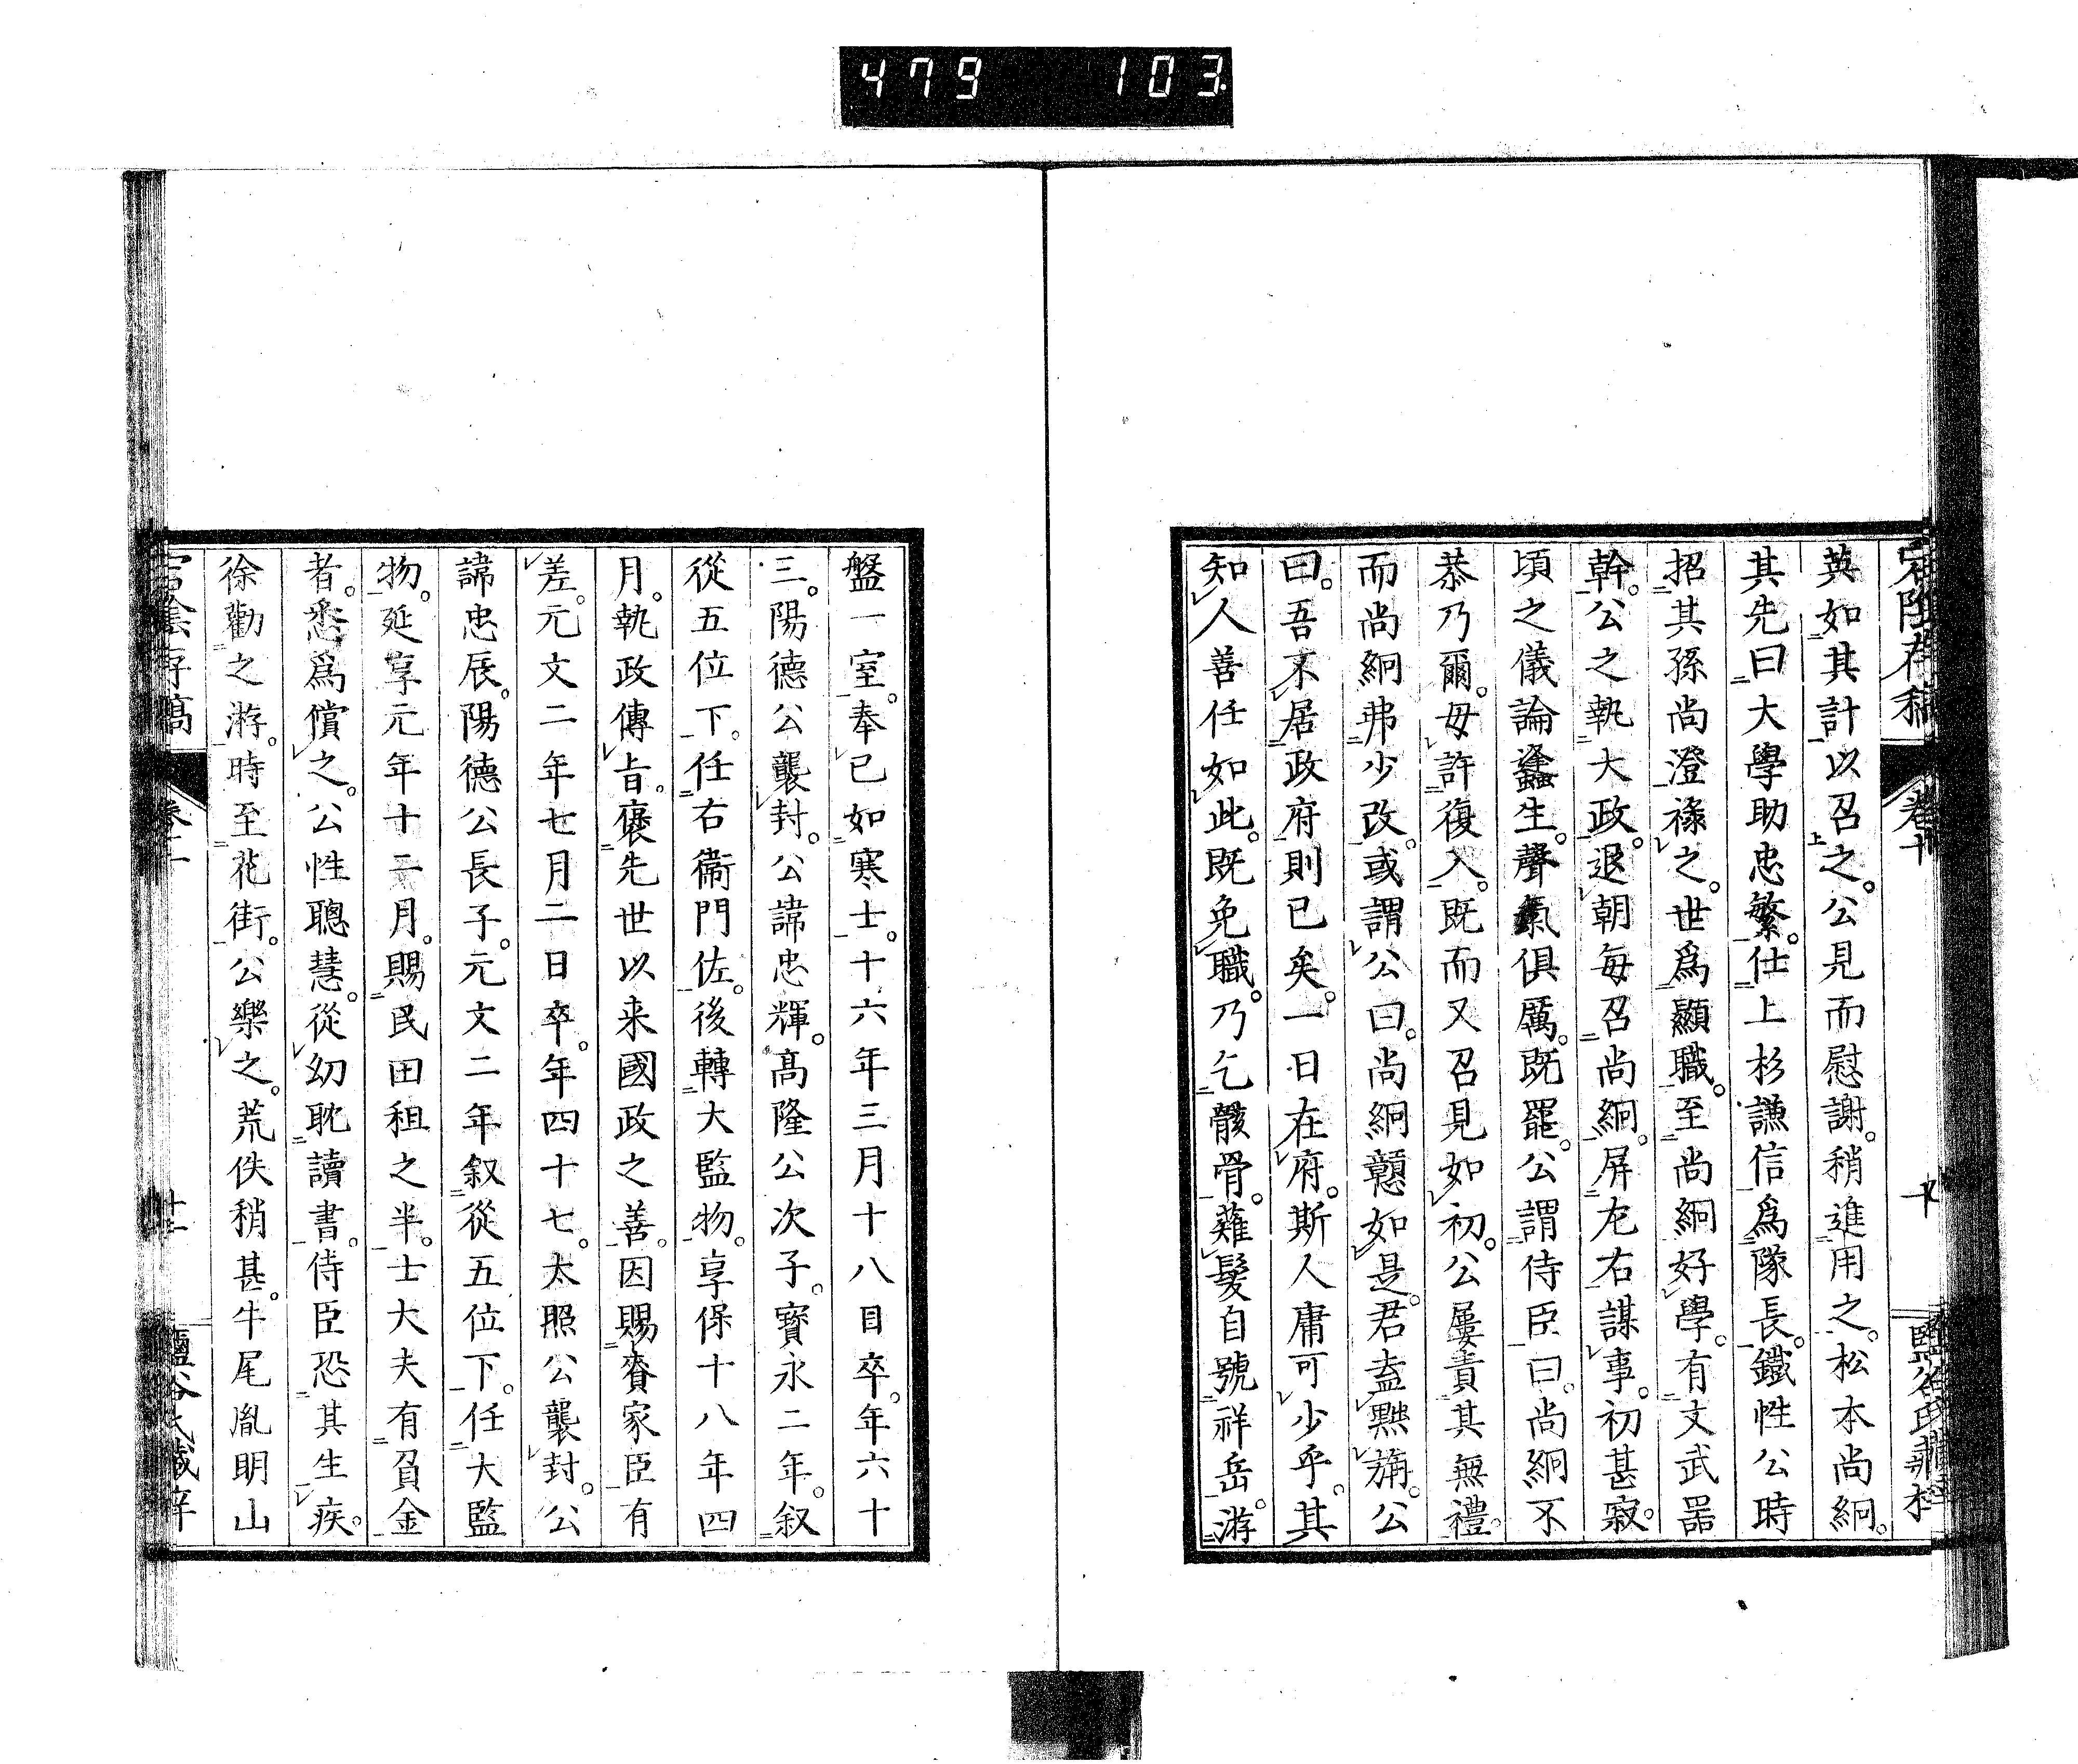 479 103
宕陰存稿 卷十 十 鹽谷氏藏梓
英如其計以召之。公見而慰謝。稍進用之。松本尚絅。
其先曰大學助忠繁。仕上杉謙信爲隊長。鐵性公時
招其孫尚澄祿之。世爲顯職。至尚絅好學。有文武器
幹。公之執大政。退朝每召尚絅。屏左右謀事。初甚寂。
頃之儀論蠭生。聲氣俱厲。既罷。公謂侍臣曰。尚絅不
恭乃爾。毋許復入。既而又召見如初。公屢責其無禮。
而尚絅弗少改。或謂公曰。尚絅戇如是。君盍黜旃。公
曰。吾不居政府則已矣。一日在府。斯人庸可少乎。其
知人善任如此。既免職。乃乞骸骨。薙髮自號祥岳。游
盤一室。奉已如寒士。十六年三月十八日卒。年六十
三。陽德公襲封。公諱忠輝。高隆公次子。寶永二年。叙
從五位下。任右衞門佐。後轉大監物。享保十八年四
月。執政傳旨。褒先世以来國政之善。因賜賚家臣有
差。元文二年七月二日卒。年四十七。太照公襲封。公
諱忠辰。陽德公長子。元文二年叙從五位下。任大監
物。延享元年十二月。賜民田租之半。士大夫有負金
者。悉爲償之。公性聰慧。從幼耽讀書。侍臣恐其生疾。
徐勸之游。時至花街。公樂之。荒佚稍甚。牛尾胤明山
宕陰存稿 卷十 十一 鹽谷氏藏梓